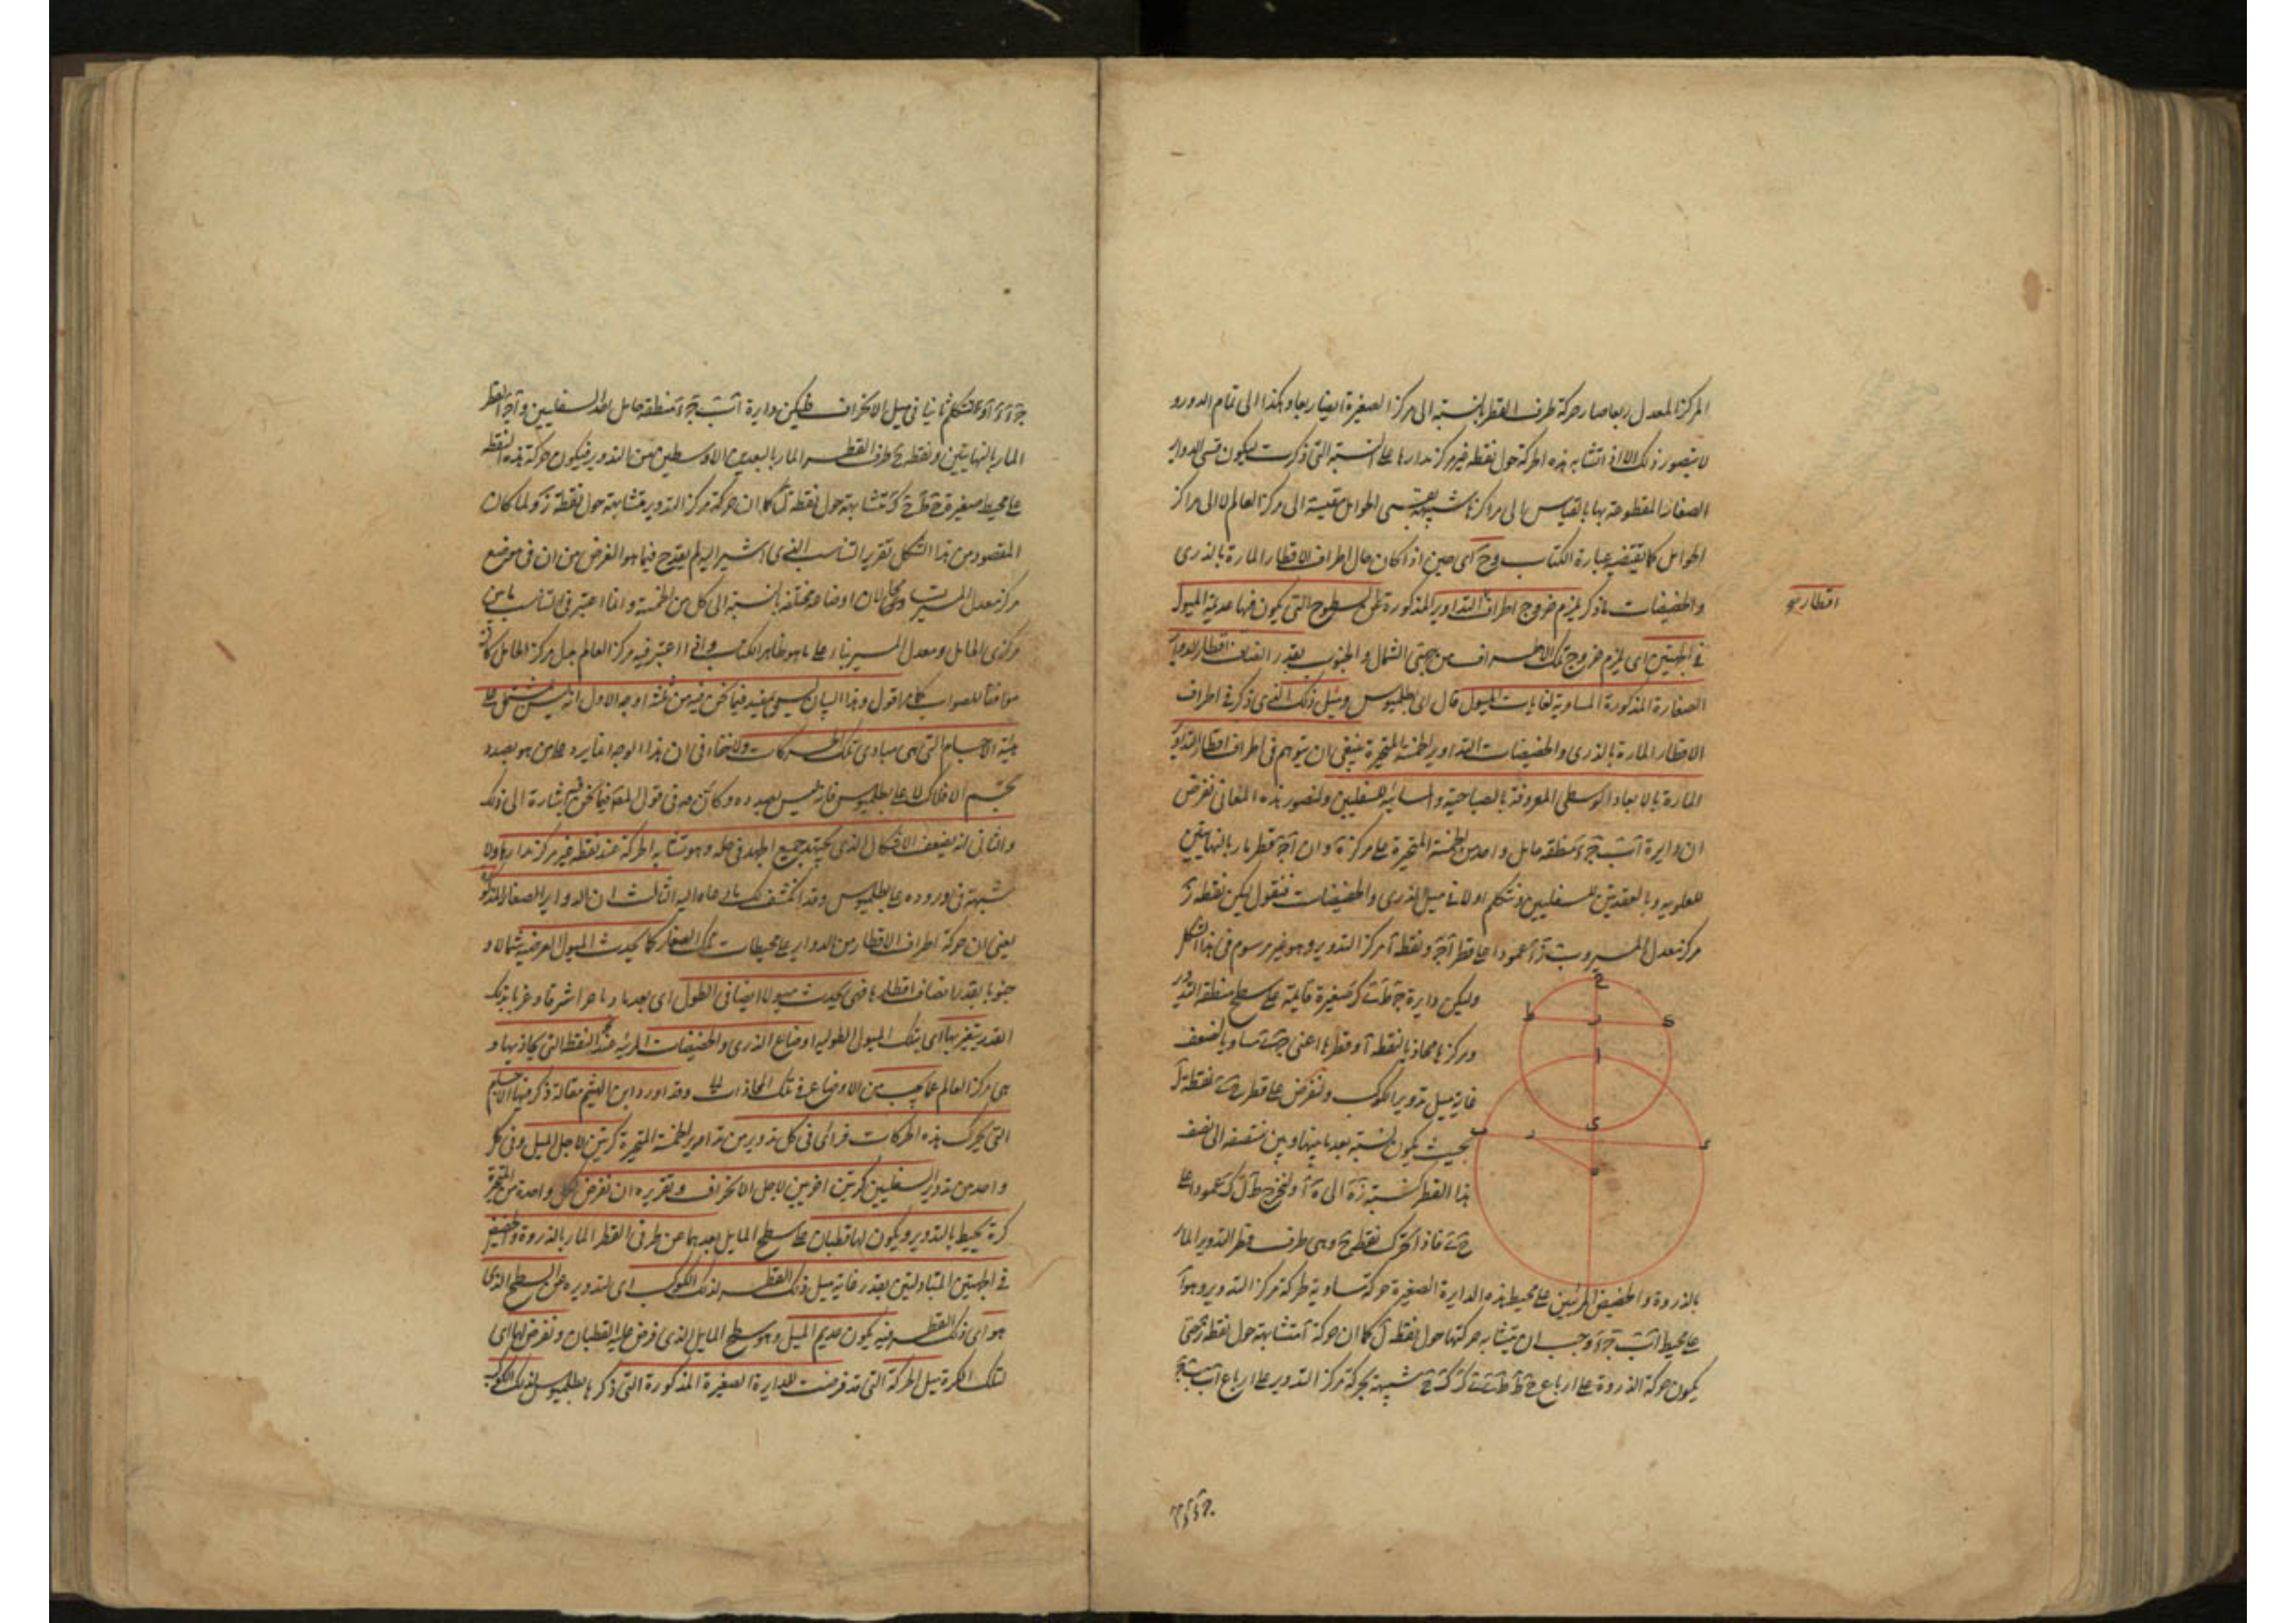 المركز المعدل ربعا صار حركة طرف القطر بالنسبة الى مركز الصغيرة ايضا ربعا وهكذا الى تمام الدور و
لا يتصور ذلك الا اذا تشابه هذه الحركة حول نقطة غير مركز مدارها على النسبة التى ذكرت ليكون قسى الدواير
الصغار المقطوعة بها بالقياس الى مراكزها شبيهة بقسى الحوامل مقيسة الى مركز العالم لا الى مراكز
الحوامل كما يقتضيه عبارة الكتاب وح اى حين اذ كان حال اطراف الاقطار المارة بالذرى
والحضيضات ما ذكر يلزم خروج اطراف التداوير المذكورة عن السطوح التى يكون فيها عديمة الميول
اقطار
فى الجهتين اى يلزم خروج تلك الاطراف من جهتى الشمال والجنوب بقدر انصاف اقطار الدواير
الصغارة المذكورة المساوية لغايات الميول قال اى بطلميوس ومثل ذلك الذى ذكر فى اطراف
الاقطار المارة بالذرى والحضيضات التداوير الخمسة المتحيرة ينبغى ان يتوهم فى اطراف اقطار التداوير
المارة بالابعاد الوسطى المعروفة بالصباحية والمسائية للسفليين ولتصور هذه المعانى نفرض
ان دايرة اب ج د منطقة حامل واحد من الخمسة المتحيرة على مركز ه وان ا ج قطر مار بالنهايتين
للعلويه وبالعقدتين للسفليين ونتكلم اولا فى ميل الذرى والحضيضات فنقول ليكن نقطة ز
مركز معدل المسير وب ز د عمودا على قطر ا ج ونقطة ا مركز التدوير وهو غير مرسوم فى هذا الشكل
وليكن دايرة ح ط ى ك صغيرة قايمة على سطح منطقة التدوير
ومركزها محاذيا لنقطة ا وقطرها اعنى ح ى مساويا لضعف
غاية ميل تدوير الكوكب ونفرض على قطر ح ى نقطة ل
بحيث يكون نسبة بعد ما بينها وبين منتصفه الى نصف
هذا القطر كنسبة ز ه الى ه ا ونخرج ط ل ك عمودا على
ح ى فاذا تحرك نقطة ح وهى طرف قطر التدوير المار
بالذروة والحضيض المرئيين على محيط هذه الدايرة الصغيرة حركة مساوية لحركة مركز التدوير وهو ا
على محيط اب ج د وجب ان يتشابه حركتها حول نقطة ل كما ان حركة ا متشابهة حول نقطة ز حتى
يكون حركة الذروة على ارباع ح ط ط ى ى ك ك ح شبيهة بحركة مركز التدوير على ارباع اب ب ج
ج د د ا
ج د د ا ولنتكلم ثانيا فى ميل الانحراف فليكن دايرة اب ج د منطقة حامل احد السفليين و ا ج القطر
المار بالنهايتين ونقطة ح طرف القطر المار بالبعدين الاوسطين من التدوير فيكون حركة هذه النقطة
على محيط صغيرة ح ط ى ك متشابهة حول نقطة ل كما ان حركة مركز التدوير متشابهة حول نقطة ز ولما كان
المقصود من هذا الشكل تقرير التناسب الذى اشير اليه لم يقدح فيما هو الغرض من ان فى موضع
مركز معدل المسير اوضاعه مختلفة بالنسبة الى كل من الخمسة وانما اعتبر فى التناسب ما بين
مركزى الحامل ومعدل المسير بناء على ما هو ظاهر الكتاب واذا اعتبر فيه مركز العالم بدل مركز الحامل كان
موافقا للصواب كما مر اقول وهذا البيان ليس بمفيد فيما نحن فيه من ثلثة اوجه الاول انه ليس بمشتمل على
هيئة الاجسام التى هى مبادى تلك الحركات ولا خفاء فى ان هذا الوجه انما يرد على من هو بصدد
تجسم الافلاك لا على بطلميوس فانه ليس بصدده وكان فى قول المص فيما نحن فيه اشارة الى ذلك
والثانى انه يضيف الاشكال الذى يجتهد جميع الجهد فى حله وهو تشابه الحركة عند نقطة غير مركز مدارها ولا
شبهة فى وروده على بطلميوس وقد انكشف لك ما دعاه اليه الثالث ان الدواير الصغار المذكورة
يعنى ان حركة اطراف الاقطار من الدواير على محيطات تلك الصغار كما يحدث الميول العرضية شمالا و
جنوبا بقدر انصاف اقطارها فهى يحدث ميولا ايضا فى الطول اى بعدها وما مر شرقا وغربا بذلك
القدر يتغير بها اى بتلك الميول الطولية اوضاع الذرى والحضيضات المرئية عند النقط التى تحاذيها و
هى مركز العالم عما يجب من الاوضاع فى تلك المحاذات وقد اورد ابن الهيثم مقالة ذكر فيها الاجسام
التى تحرك هذه الحركات فزاد فى كل تدوير من تداوير الخمسة المتحيرة كرتين لاجل الميل وفى كل
واحد من تدوير السفليين كرتين اخريين لاجل الانحراف وتقريره ان نفرض لكل واحد من المتحيرة
كرة يحيط بالتدوير ويكون لها قطبان على سطح المايل بعدهما عن طرفى القطر المار بالذروة والحضيض
فى الجهتين المتبادلتين بقدر غاية ميل ذلك القطر لذلك الكوكب اى لتدويره عن السطح الذى
هو اى ذلك القطر فيه يكون عديم الميل وهو سطح المايل الذى فرض عليه القطبان ونفرض لها اى
لتلك الكرة مثل الحركة التى قد فرضت للدايرة الصغيرة المذكورة التى ذكرها بطلميوس لذلك الكوكب